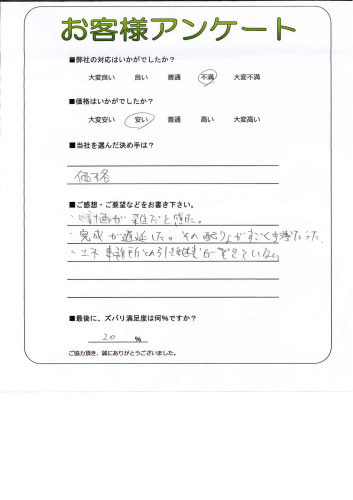 お客様アンケート
■弊社の対応はいかがでしたか?
大変良い 良い 普通 不満 大変不満
■価格はいかがでしたか?
大変安い 安い 普通 高い 大変高い
■当社を選んだ決め手は?
価格
■ご感想・ご要望などをお書き下さい。
・計画が雑だと感じた。
・完成が遅延した。その
・土木事務所との引き継ぎができていない
■最後に、ズバリ満足度は何%ですか?
20 %
ご協力頂き、誠にありがとうございました。